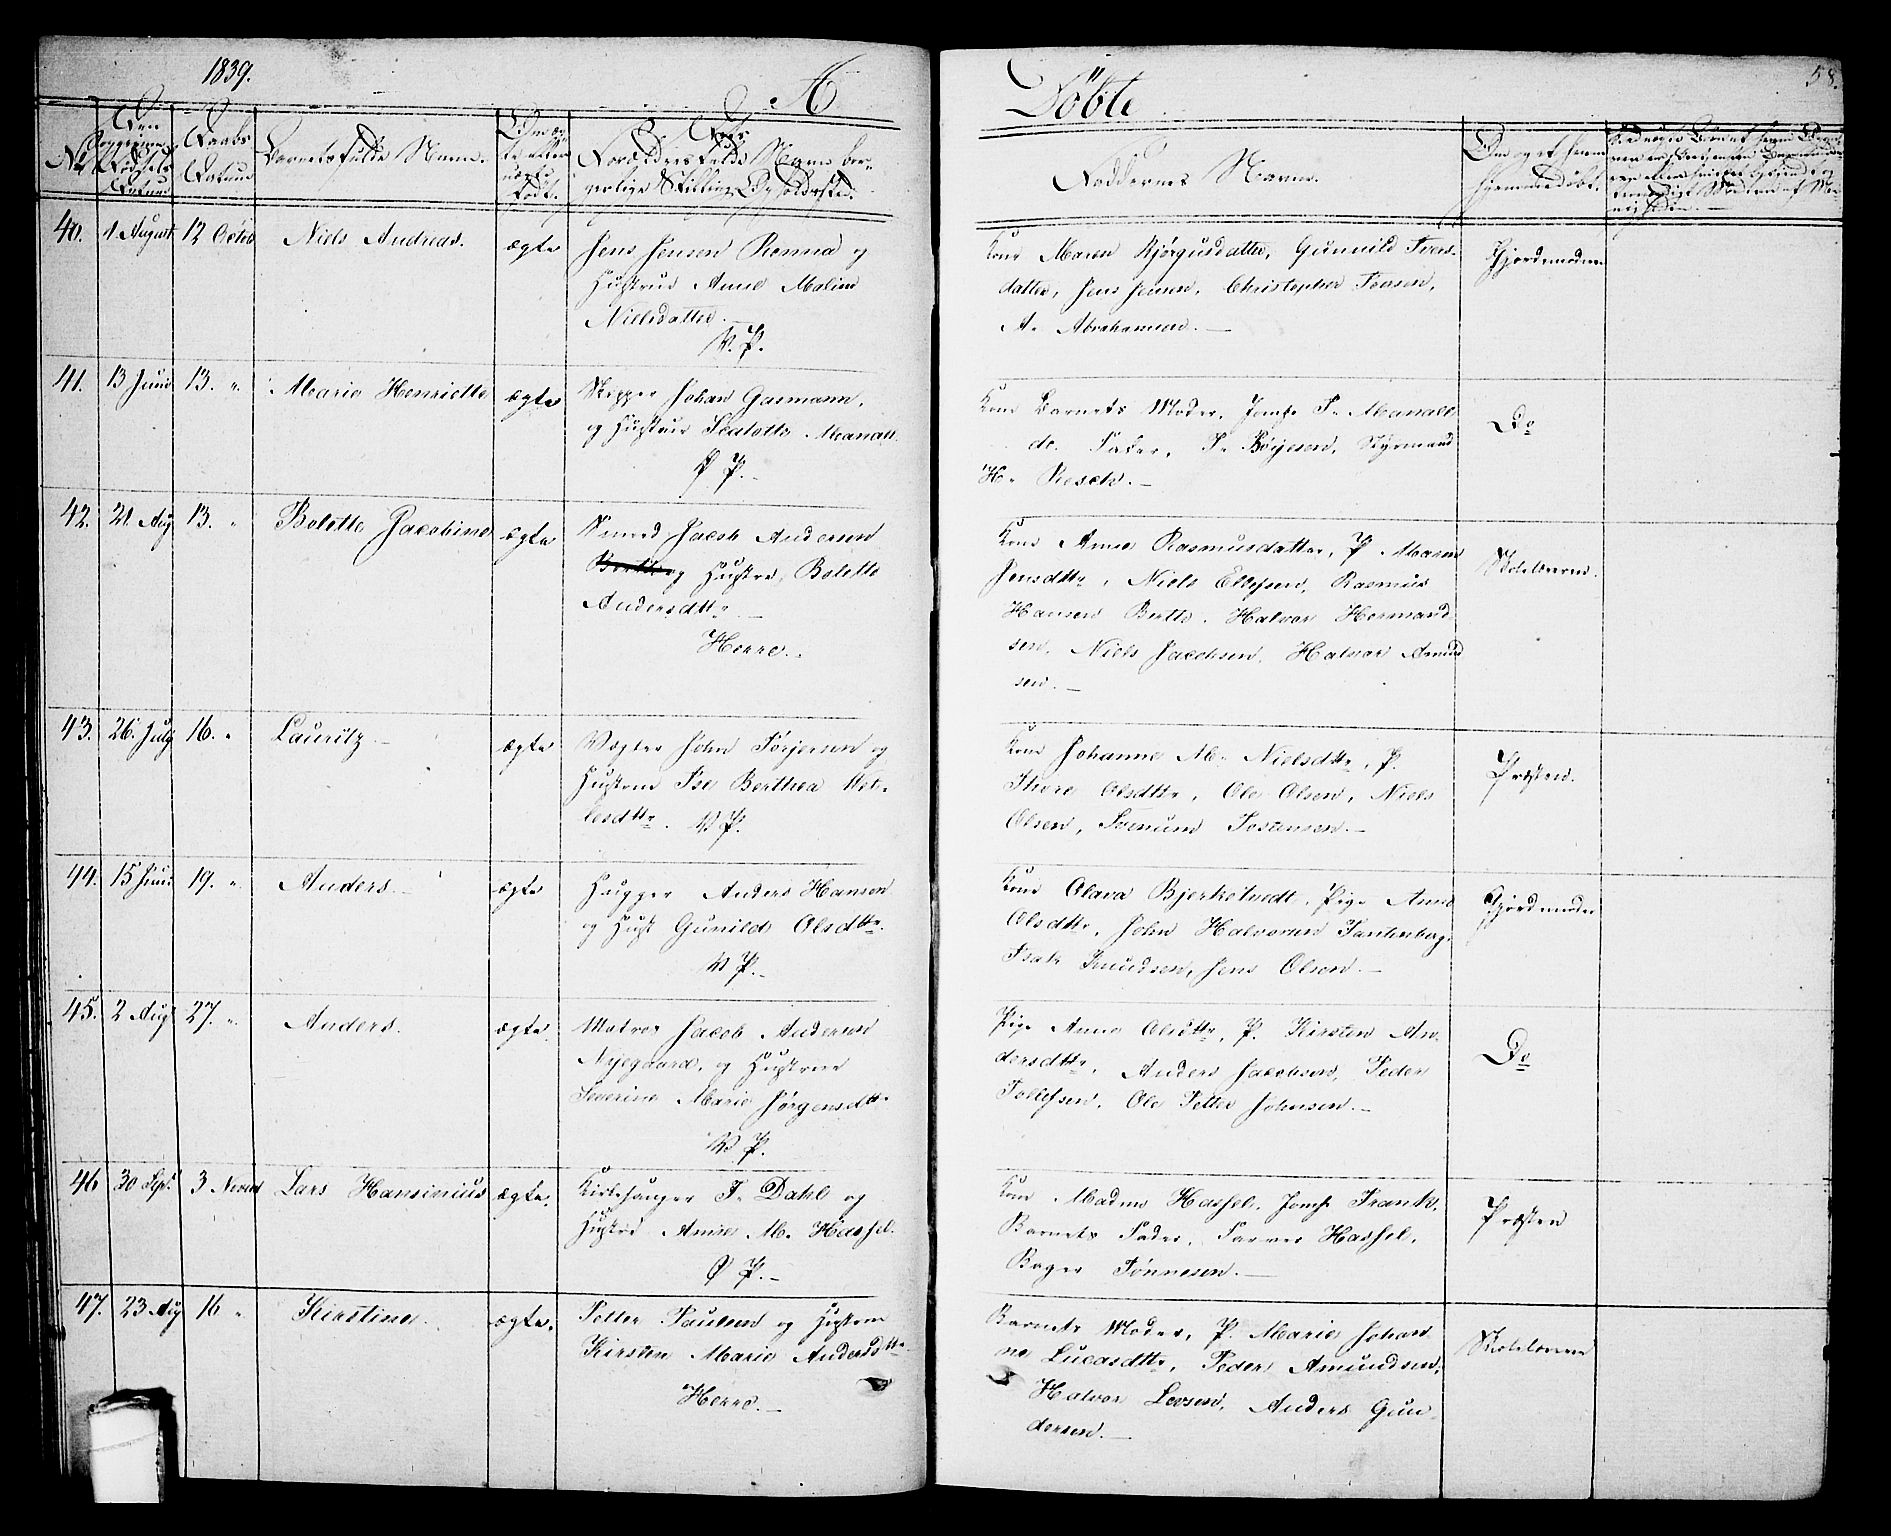 1839.
A
Døbte
58.
No
Barnets fulde Navn.
Daabs
Datum
Forældres fulde Navn, bor-
gerlige Stilling og Opholdssted.
Faddernes Navne.
Om og af hvem
hjemmedøbt.
40. 1 August 12 Octob Niels Andreas. ægte
Jens Jensen Ronna og
Hustrue Anne Maline
Nielsdatter.
V. P.
Kone Maren Bjørgusdatter, Gunnild Ivers-
datter, Jens Jensen, Christopher Jensen,
A. Abrahamsen. —
Gjordemodren
41. 13 Juni 13. " Marie Henriette ægte
Skipper Johan Gasmann,
og Hustrue
Ø P.
Kone Barnets Moder, Jomfr
do. Fader, Børjesen, Styrmand
H. Resch. —
Do
42. 21 Aug 13. " Bolette Jacobine ægte
Smed Jacob Andersen
og Hustru Bolette
Andersdttr —
Herre.
Kone Anne Rasmusdatter, P. Maren
Jensdttr, Niels Ellefsen, Rasmus
Hansen Halvor Hermand-
sen, Niels Jacobsen, Halvor Amund
sen. —
Skolelæreren.
43. 26. July 16. " Lauritz ægte
Vægter John Torjersen og
Hustrue Ise Berthea
V P.
Kone Johanne M. Nielsdttr, P.
Thore Olsdttr, Ole Olsen, Niels
Olsen, Svenund Tostensen. —
Præsten.
44. 15 Juni 19. " Anders. ægte
Hugger Anders Hansen
og Hust Gunild Olsdttr.
V P.
Kone Olava Bjerketvedt, Pige Anne
Olsdttr, John Halvorsen Tantenberg,
Isak Knudsen, Jens Olsen. —
Gjordemoder
45. 2 Aug 27. " Anders. ægte
Matros Jacob Andersen
Nyegaard, og Hustrue
Severine Marie Jørgensdttr
V P.
Pige Anne Olsdttr, P. Kirsten An-
dersdttr, Anders Jacobsen, Peder
Tollefsen, Ole Petter Johnsen. —
Do
46 30 Sept. 3 Novem Lars Hansinius ægte.
Kirkesanger T. Dahl og
Hustrue Anne M. Hassel.
Ø P. —
Kone Madme Hassel, Jomfr Frank,
Barnets Fader, Farver Hassel,
Bager Tønnesen. —
Præsten
47. 23 Aug 16 " Kirstine. ægte.
Petter Paulsen og Hustrue
Kirsten Marie Andersdttr
Herre. —
Barnets Moder, P. Marie Johan
ne Lucasdttr, Peder Amundsen,
Halvor Levsen, Anders Gun-
dersen. —
Skolelærere